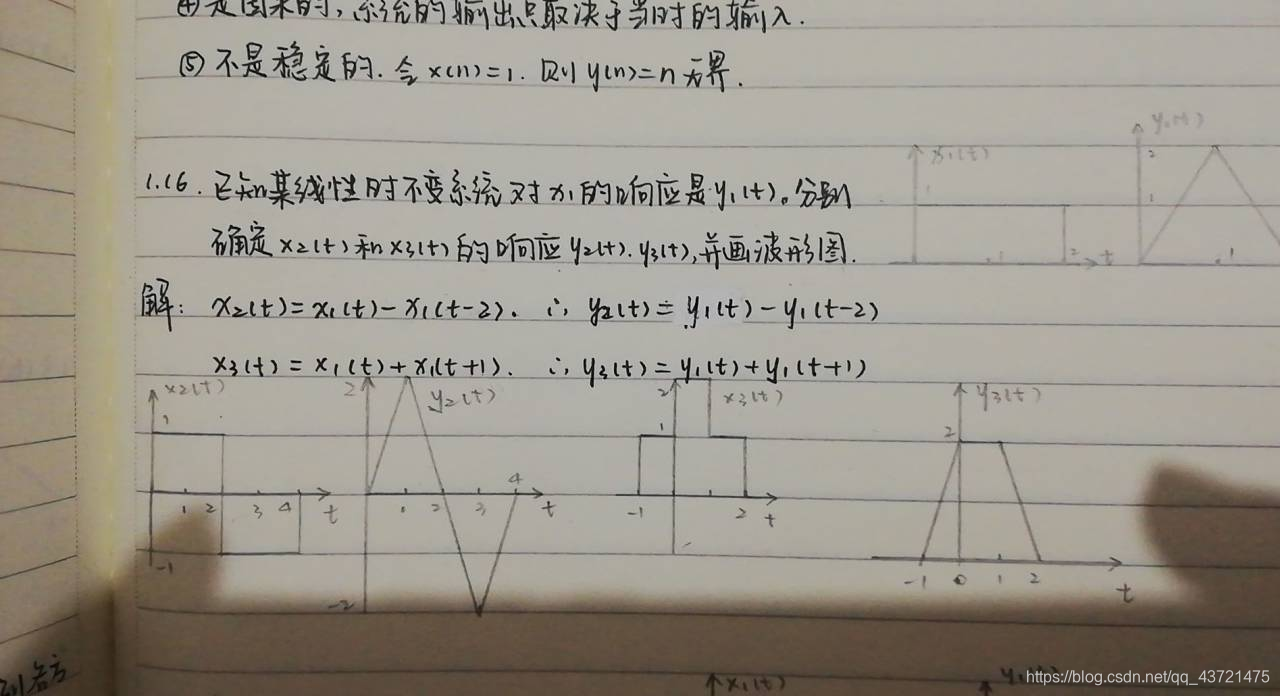 ④是因果的,系统的输出只取决于当时的输入.
⑤ 不是稳定的. 令 x(n)=1. 则 y(n)=n 无界.
1.16. 已知某线性时不变系统对 x₁ 的响应是 y₁(t)。分别
确定 x₂(t) 和 x₃(t) 的响应 y₂(t). y₃(t),并画波形图.
x₁(t)
1
1
2
t
y₁(t)
2
1
1
解: x₂(t)=x₁(t)-x₁(t-2). ∴ y₂(t)=y₁(t)-y₁(t-2)
x₃(t)=x₁(t)+x₁(t+1). ∴ y₃(t)=y₁(t)+y₁(t+1)
x₂(t)
1
1 2 3 4 t
-1
2 y₂(t)
1 2 3 4 t
-2
2 x₃(t)
1
-1 2 t
y₃(t)
2
-1 0 1 2 t
x₁(t)
y₁(t)
https://blog.csdn.net/qq_43721475